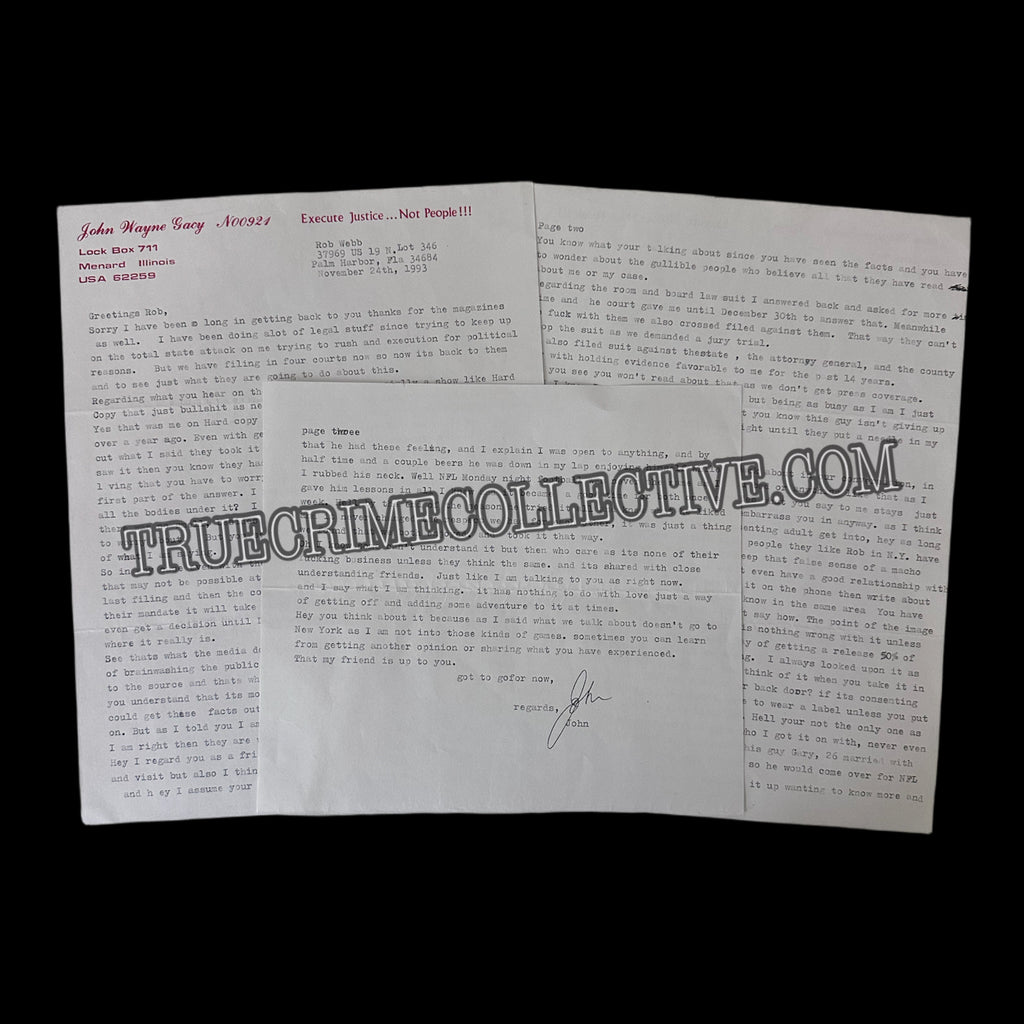 John Wayne Gacy N00921
Execute Justice...Not People!!!
Lock Box 711
Menard Illinois
USA 62259
Rob Webb
37969 US 19 N.Lot 346
Palm Harbor, Fla 34684
November 24th, 1993
Greetings Rob,
Sorry I have been so long in getting back to you thanks for the magazines
as well. I have been doing alot of legal stuff since trying to keep up
on the total state attack on me trying to rush and execution for political
reasons. But we have filing in four courts now so now its back to them
and to see just what they are going to do about this.
Regarding what you hear on th a show like Hard
Copy that just bullshit as ne
Yes that was me on Hard copy
over a year ago. Even with ge
cut what I said they took it
saw it then you know they ha
l ving that you have to worr
first part of the answer. I
all the bodies under it? I
ther
to w
of what I
So in
that may not be possible at
last filing and then the co
their mandate it will take
even get a decision until I
where it really is.
See thats what the media do
of brainwashing the public
to the source and thats wh
you understand that its mo
could get these facts out
on. But as I told you I am
I am right then they are
Hey I regard you as a fri
and visit but also I thin
and h ey I assume your
Page two
You know what your t lking about since you have seen the facts and you have
to wonder about the gullible people who believe all that they have read
about me or my case.
egarding the room and board law suit I answered back and asked for more
ime and he court gave me until December 30th to answer that. Meanwhile
fuck with them we also crossed filed against them. That way they can't
op the suit as we demanded a jury trial.
also filed suit against thestate , the attorney general, and the county
with holding evidence favorable to me for the p st 14 years.
you see you won't read about that as we don't get press coverage.
but being as busy as I am I just
t you know this guy isn't giving up
ght until they put a needle in my
about i on, in
you say to me stays just
embarrass you in anyway. as I think
enting adult get into, hey as long
people they like Rob in N.Y. have
eep that false sense of a macho
even have a good relationship with
it on the phone then write about
know in the same area You have
t say how. The point of the image
is nothing wrong with it unless
y of getting a release 50% of
g. I always looked upon it as
think of it when you take it in
r back door? if its consenting
e to wear a label unless you put
. Hell your not the only one as
ho I got it on with, never even
his guy Gary, 26 married with
so he would come over for NFL
it up wanting to know more and
page three
that he had these feeling, and I explain I was open to anything, and by
half time and a couple beers he was down in my lap enjoying
I rubbed his neck. Well NFL Monday night football
gave him lessons in all I became a for both once
week.
it was just a thing
took it that way.
understand it but then who care as its none of their
fucking business unless they think the same. and its shared with close
understanding friends. Just like I am talking to you as right now.
and I say what I am thinking. it has nothing to do with love just a way
of getting off and adding some adventure to it at times.
Hey you think about it because as I said what we talk about doesn't go to
New York as I am not into those kinds of games. sometimes you can learn
from getting another opinion or sharing what you have experienced.
That my friend is up to you.
got to gofor now,
regards,
John
John
TRUECRIMECOLLECTIVE.COM